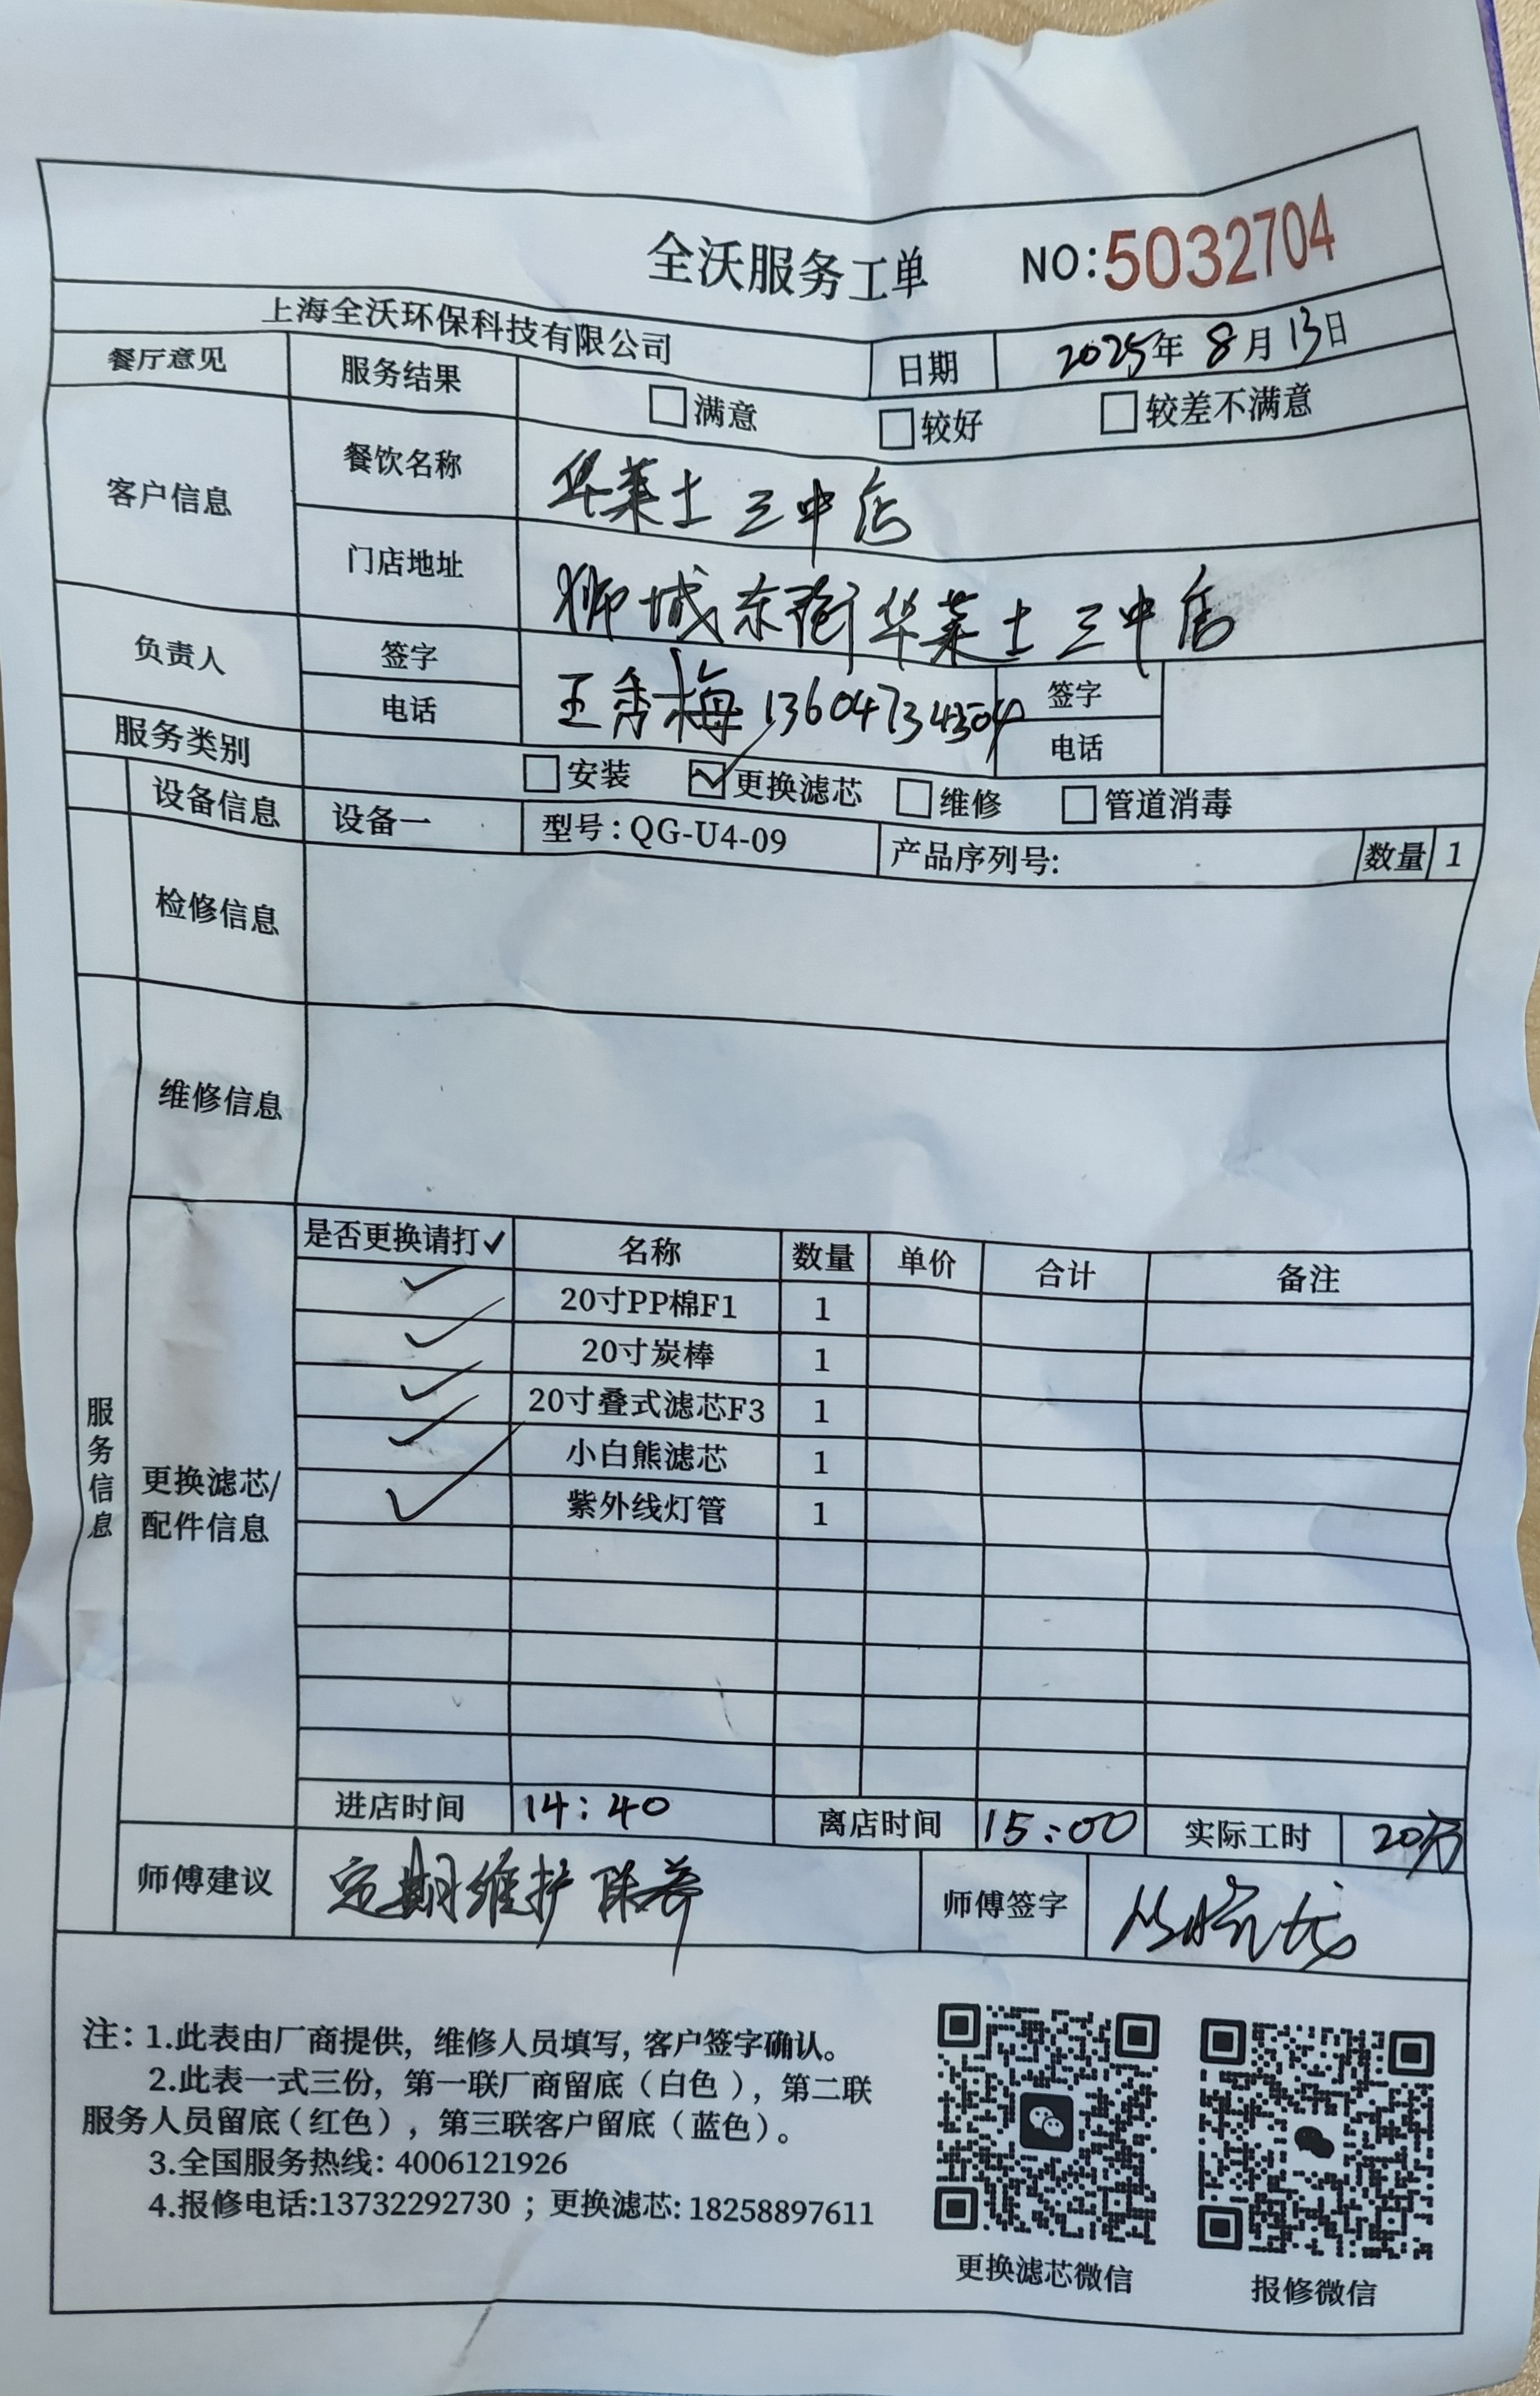 全沃服务工单 NO:5032704
上海全沃环保科技有限公司 日期 2025年8月13日
餐厅意见 服务结果 □满意 □较好 □较差不满意
客户信息 餐饮名称 华莱士三中店
门店地址 狮城东街华莱士三中店
负责人 签字 王秀梅 13604734504 签字
电话 电话
服务类别 □安装 ☑更换滤芯 □维修 □管道消毒
设备信息 设备一 型号:QG-U4-09 产品序列号: 数量 1
检修信息
维修信息
服务信息
更换滤芯/
配件信息
是否更换请打✓ 名称 数量 单价 合计 备注
✓ 20寸PP棉F1 1
✓ 20寸炭棒 1
✓ 20寸叠式滤芯F3 1
✓ 小白熊滤芯 1
✓ 紫外线灯管 1
进店时间 14:40 离店时间 15:00 实际工时 20分
师傅建议 定期维护保养 师傅签字
注: 1.此表由厂商提供, 维修人员填写, 客户签字确认。
2.此表一式三份, 第一联厂商留底(白色), 第二联
服务人员留底(红色), 第三联客户留底(蓝色)。
3.全国服务热线: 4006121926
4.报修电话:13732292730 ; 更换滤芯: 18258897611
更换滤芯微信 报修微信